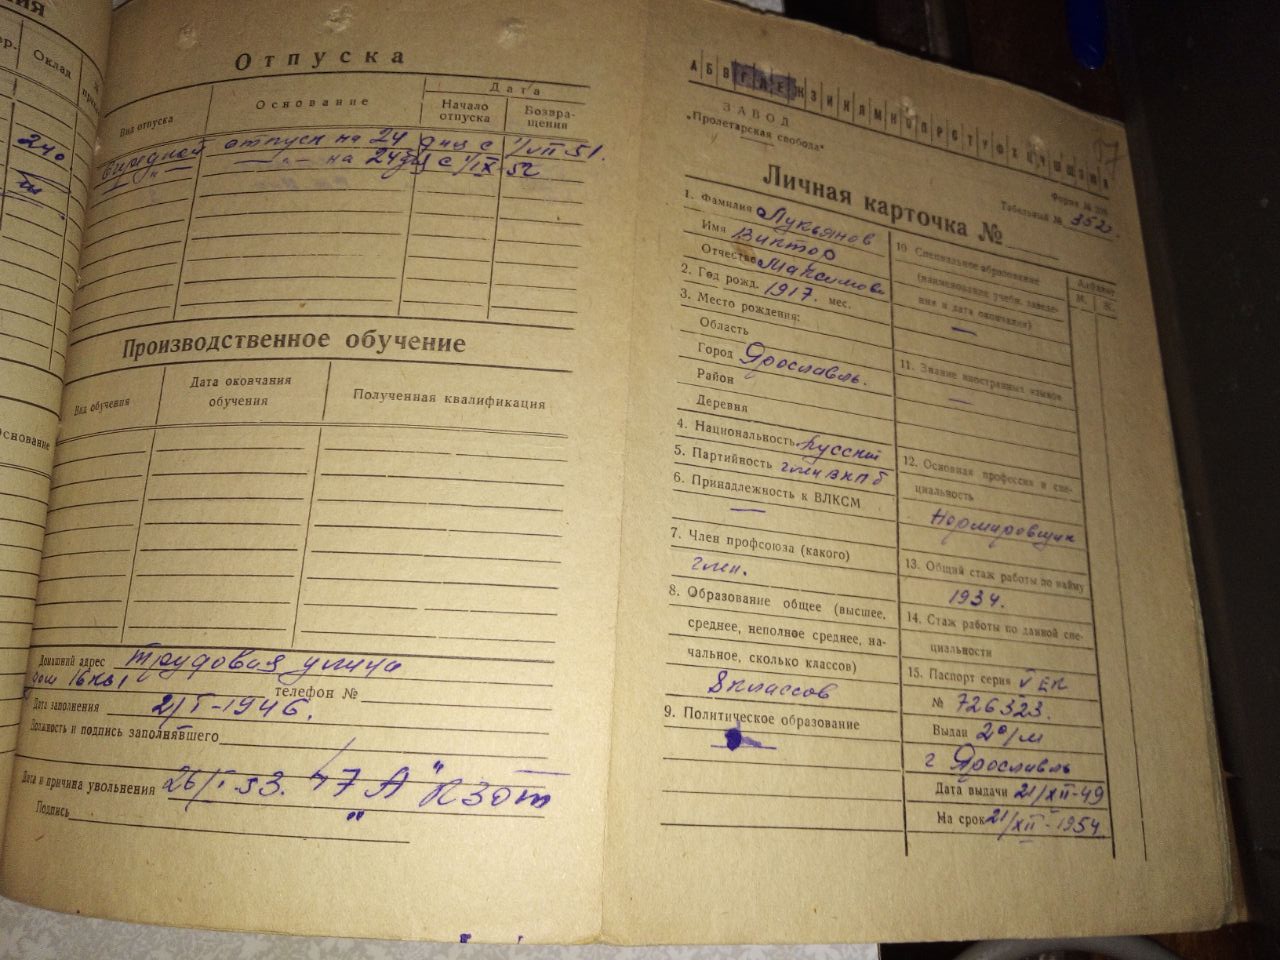 Оклад
240
Основание
Отпуска
Вид отпуска
Основание
Дата
Начало отпуска
Возвращения
Очередной отпуск на 24 дня с 1/VII 51.
—"— на 24 дн с 1/IX 52
Производственное обучение
Вид обучения
Дата окончания обучения
Полученная квалификация
Домашний адрес Трудовая улица
дом 16 кв 1 телефон №
Дата заполнения 21/I-1946.
Должность и подпись заполнявшего
Дата и причина увольнения 26/I 53. 47 "А" КЗОТ
Подпись
А Б В Г Д Е Ж З И К Л М Н О П Р С Т У Ф Х Ц Ч Ш Щ Э Ю Я
97
ЗАВОД
„Пролетарская свобода"
Форма №
Табельный № 352.
Личная карточка №
1. Фамилия Лукьянов
Имя Виктор
Отчество Максимов
2. Год рожд. 1917. мес.
3. Место рождения:
Область
Город Ярославль.
Район
Деревня
4. Национальность русский
5. Партийность член ВКПб
6. Принадлежность к ВЛКСМ
—
7. Член профсоюза (какого)
член.
8. Образование общее (высшее,
среднее, неполное среднее, на-
чальное, сколько классов)
8 классов
9. Политическое образование
10. Специальное образование
(наименование учебн. заведе-
ния и дата окончания)
—
11. Знание иностранных языков
—
12. Основная профессия и спе-
циальность
Нормировщик
13. Общий стаж работы по найму
1934.
14. Стаж работы по данной спе-
циальности
15. Паспорт серия V ЕК
№ 726323.
Выдан 2о/м
г Ярославль
Дата выдачи 21/XII-49
На срок 21/XII-1954
Алфавит
М. К.